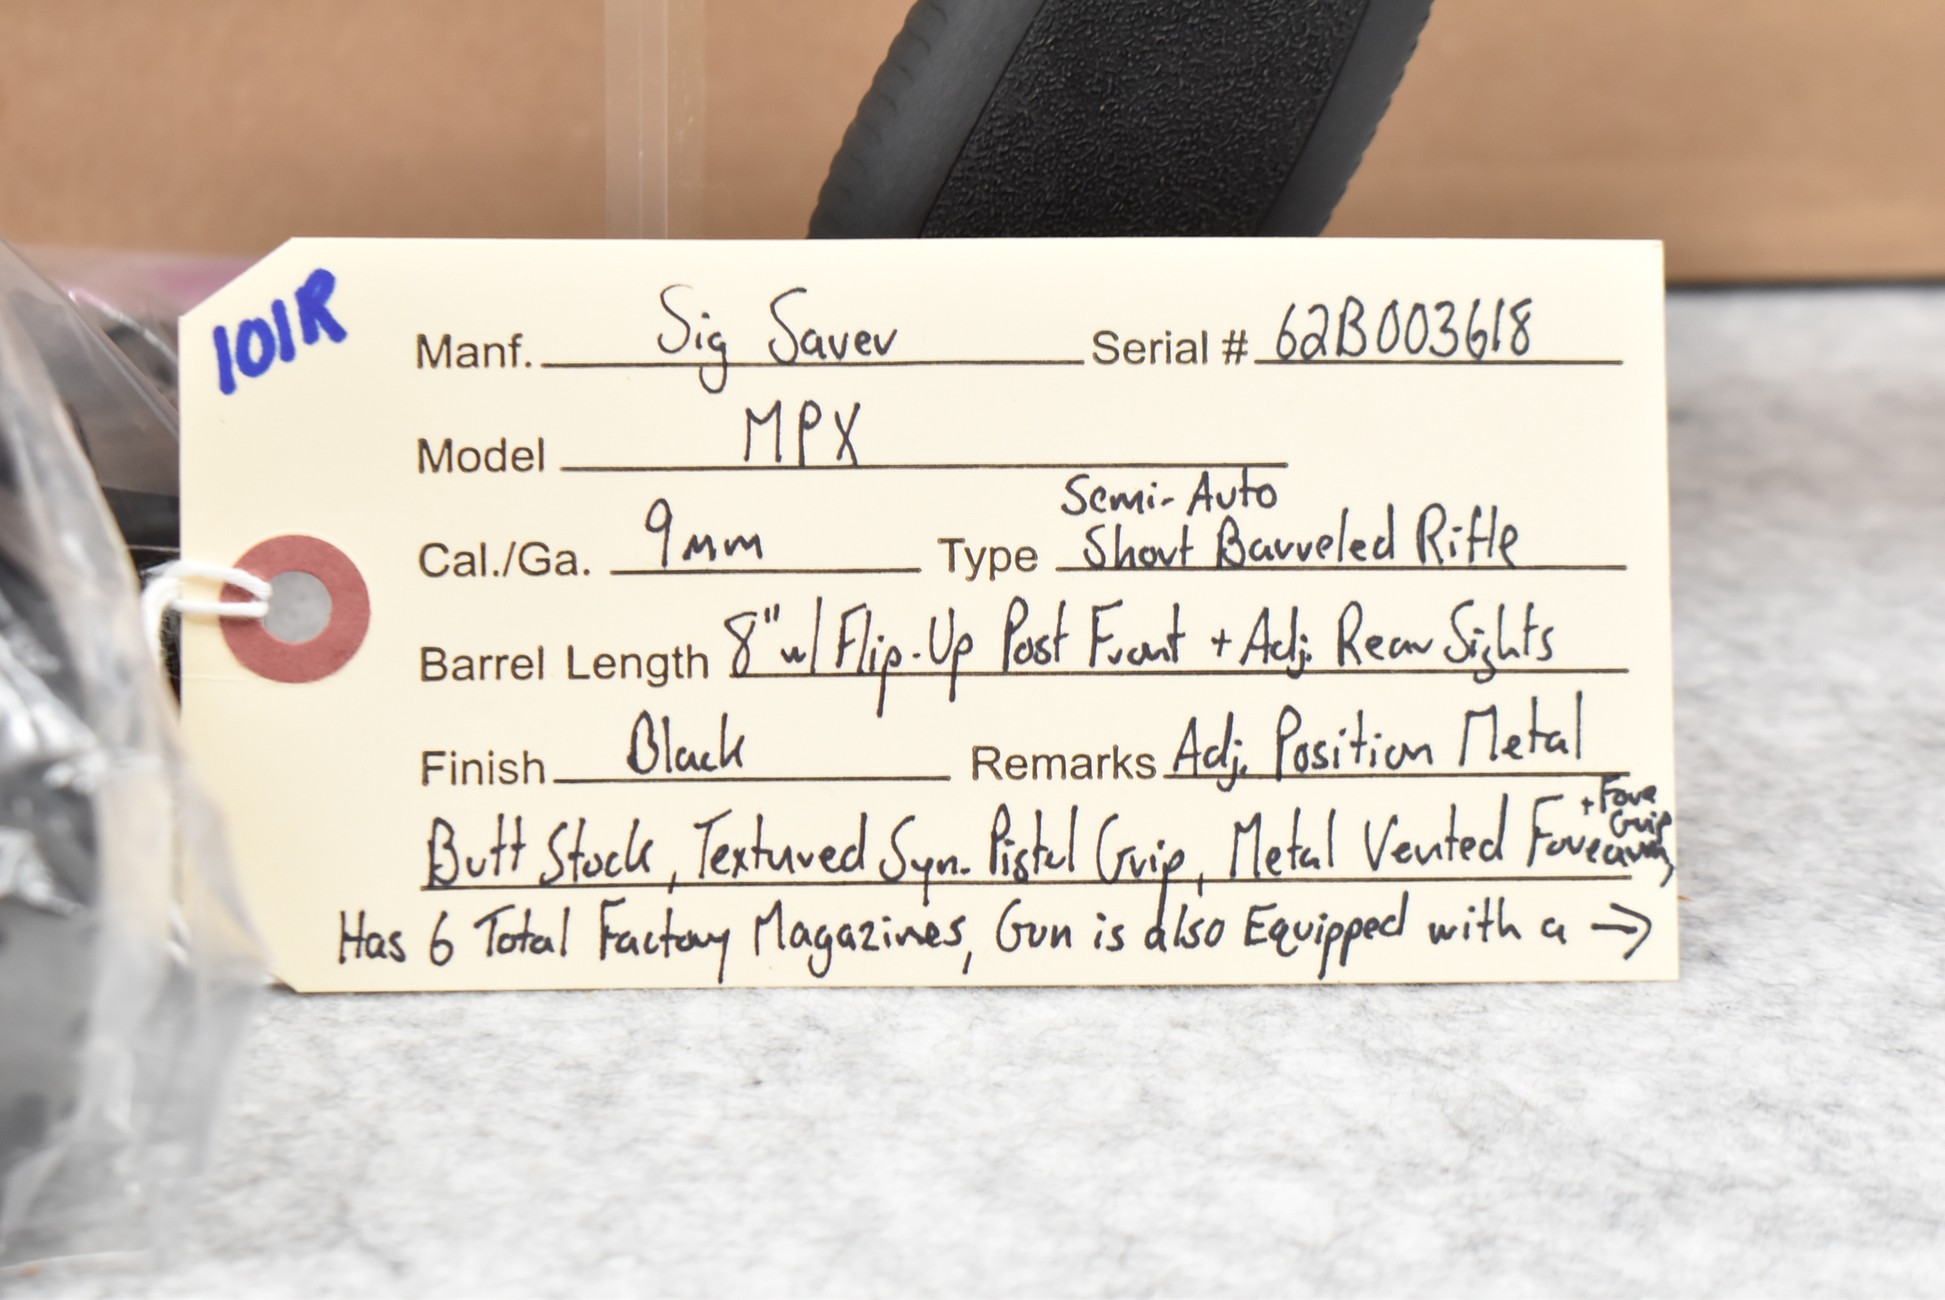 101R
Manf. Sig Sauer Serial # 62B003618
Model MPX
Semi-Auto
Cal./Ga. 9mm Type Short Barreled Rifle
Barrel Length 8" w/ Flip-Up Post Front + Adj. Rear Sights
Finish Black Remarks Adj. Position Metal
+ Fore
Grip
Butt Stock, Textured Syn. Pistol Grip, Metal Vented Forearm,
Has 6 Total Factory Magazines, Gun is also Equipped with a →